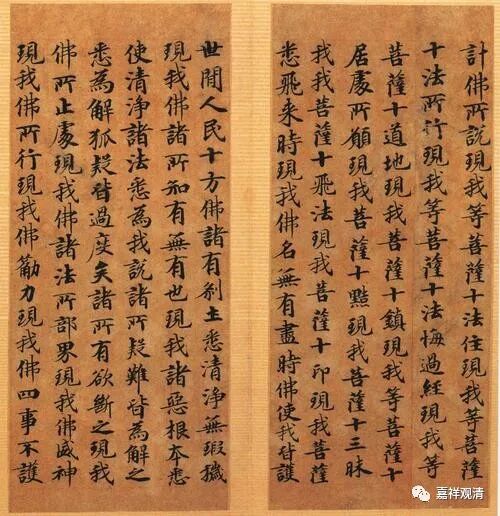 計佛所說現我等菩薩十法住現我等菩薩
十法所行現我等菩薩十法悔過經現我等
菩薩十道地現我等菩薩十鎮現我等菩薩十
居處所願現我菩薩十黠現我菩薩十三昧
我我菩薩十飛法現我菩薩十印現我菩薩
悉飛来時現我佛名無有盡時佛使我皆護
世間人民十方佛諸有剎土悉清淨無瑕穢
現我佛諸所知有無有也現我諸惡根本悉
使清淨諸法悉為我說諸所疑難皆為解之
悉為解狐疑皆過度矣諸所有欲斷之現我
佛所止處現我佛諸法所部界現我佛威神
現我佛所行現我佛勸力現我佛四事不護
嘉祥观清